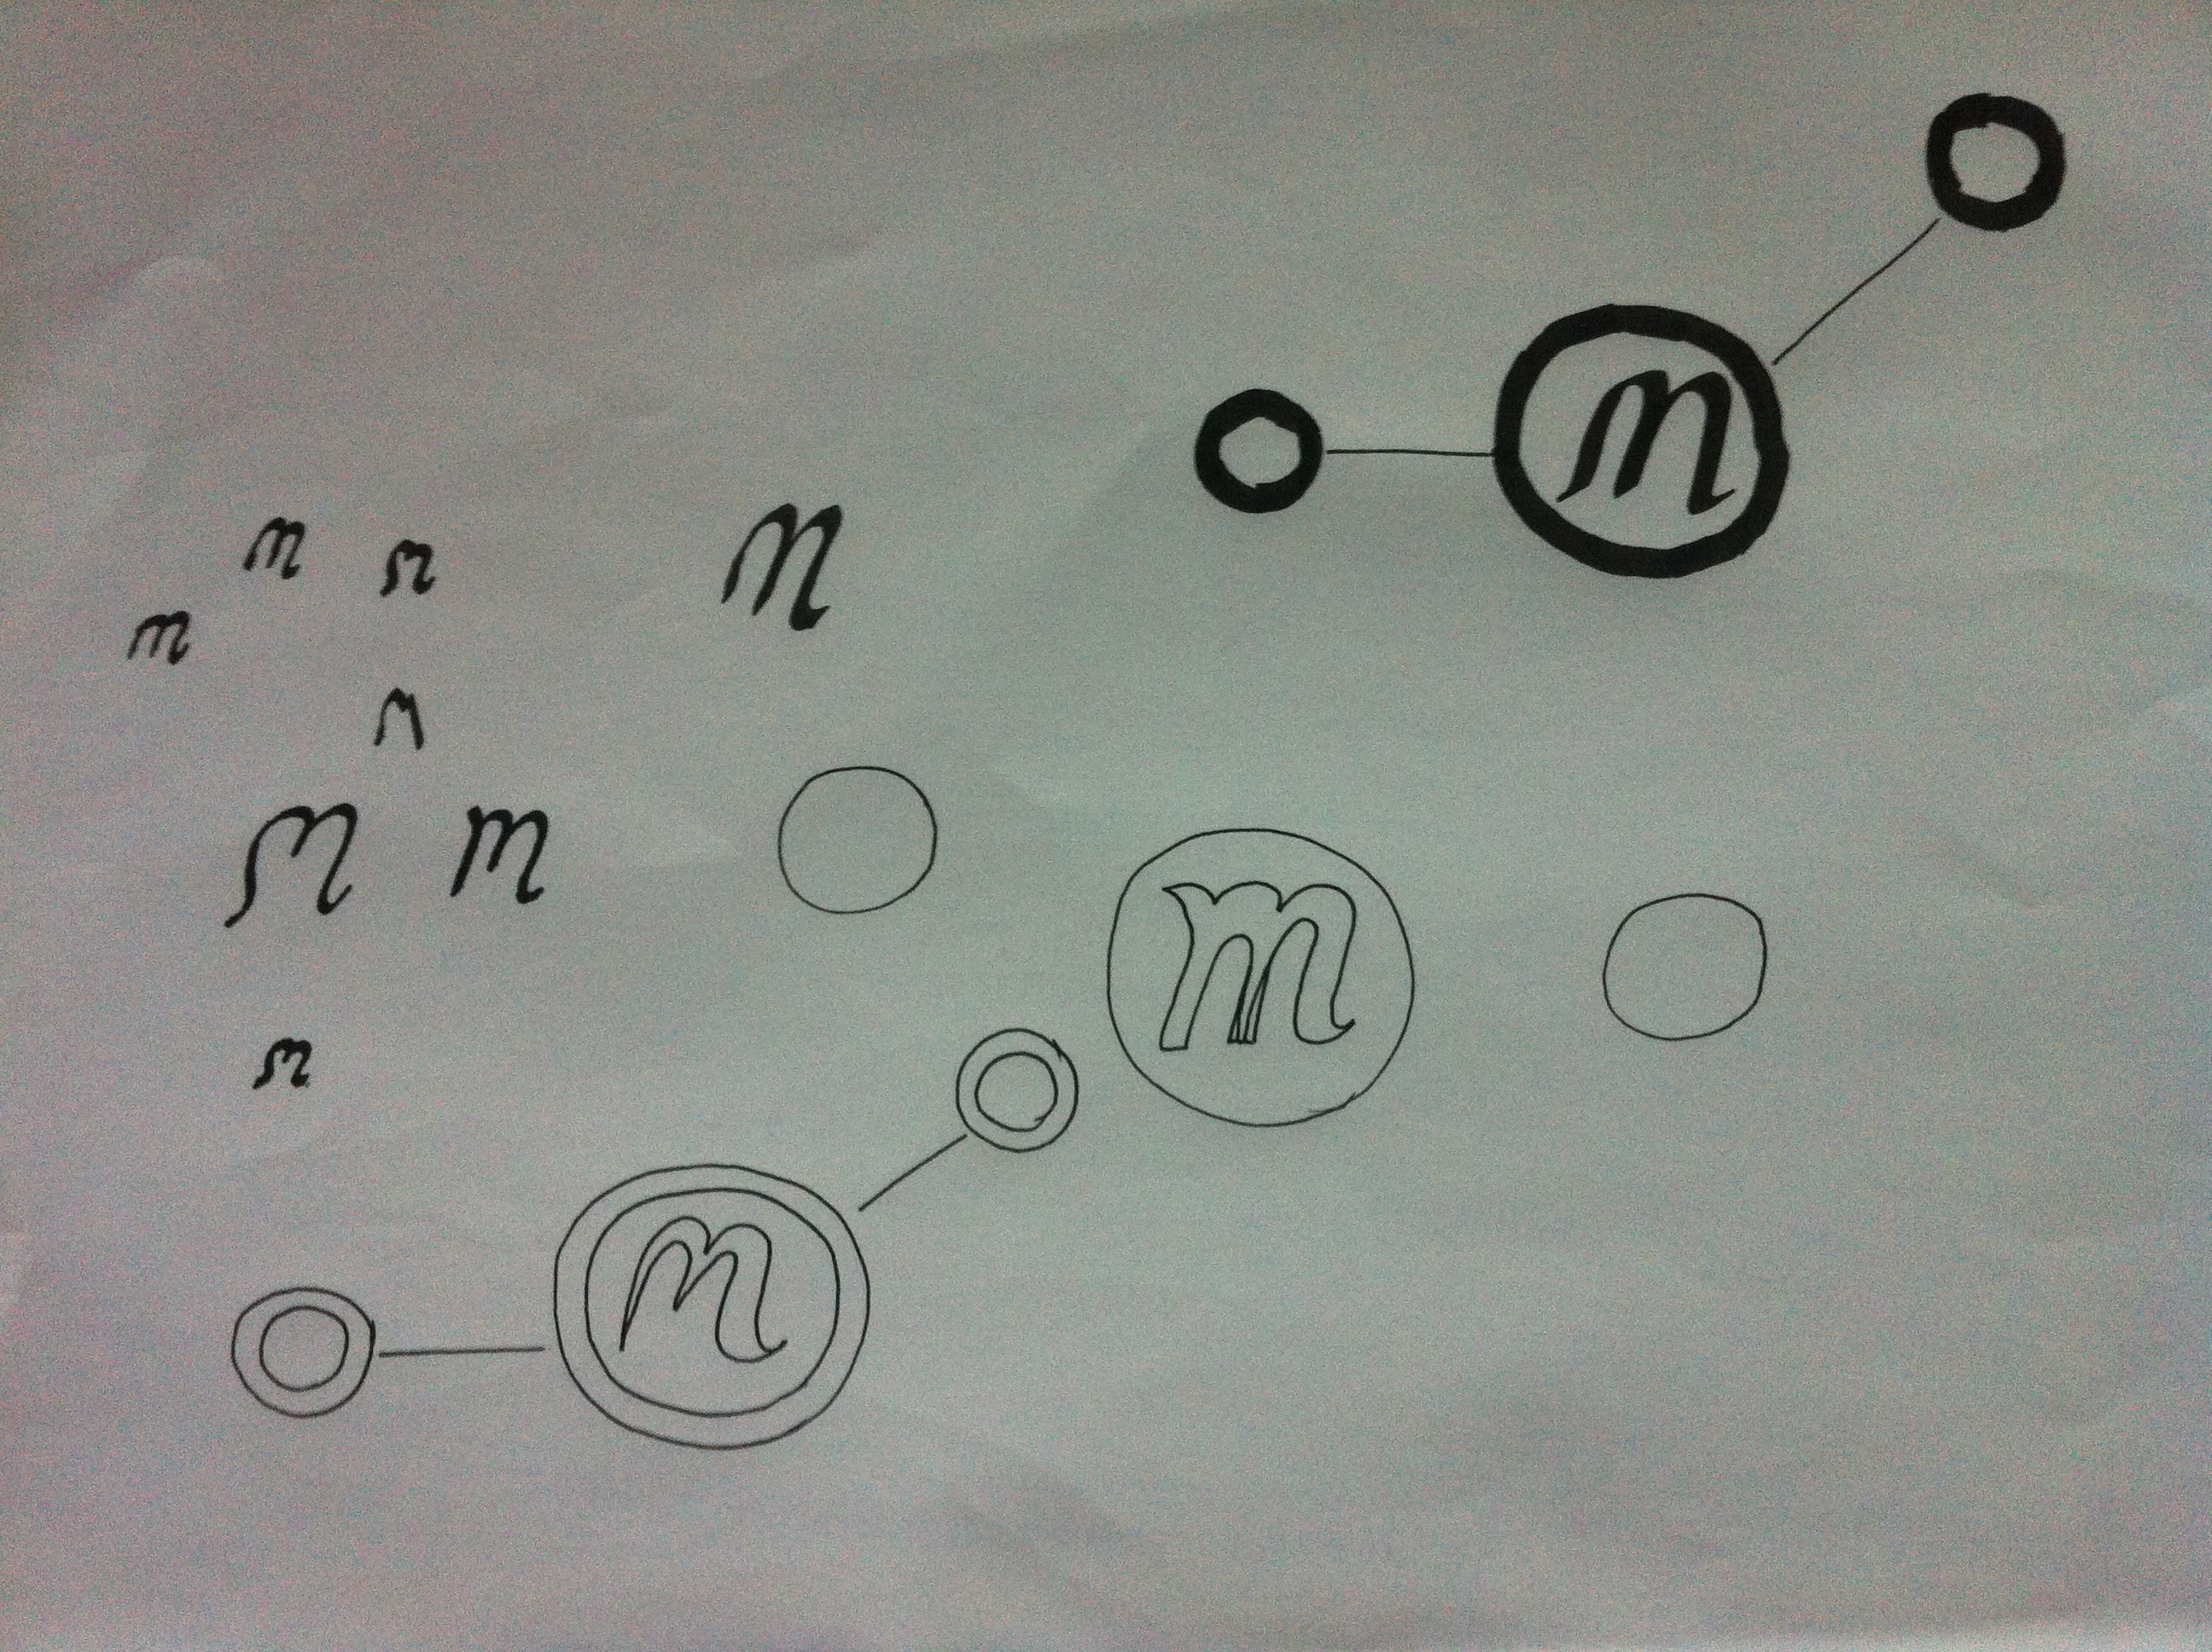 w
w
w
w w
w
w
w
w w
w